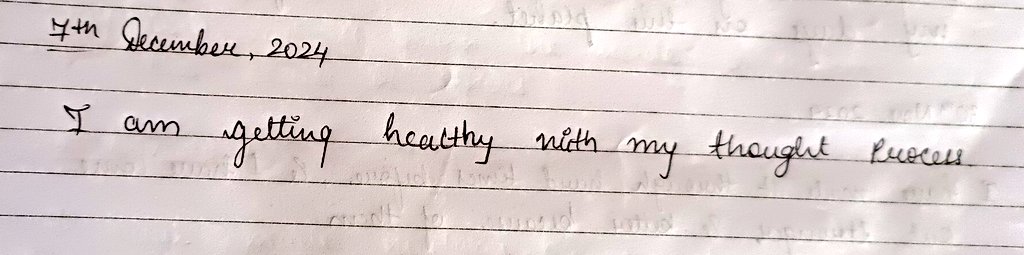 7th December, 2024
I am getting healthy with my thought process